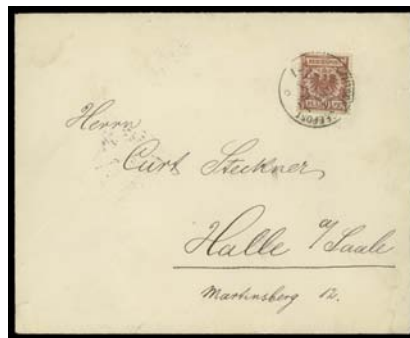 REICHSPOST
Herrn
Curt Steckner
Halle a/Saale
Martinsberg 12.